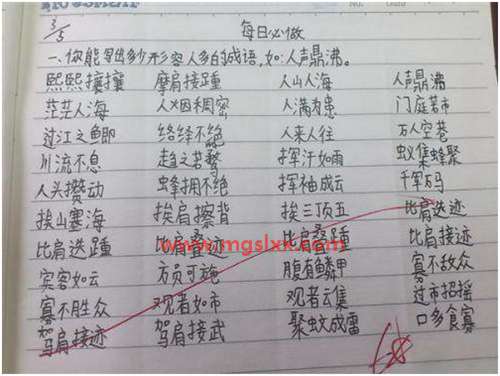 3/5 每日必做
一、你能写出多少形容人多的成语,如:人声鼎沸。
熙熙攘攘 摩肩接踵 人山人海 人声鼎沸
茫茫人海 人烟稠密 人满为患 门庭若市
过江之鲫 络绎不绝 人来人往 万人空巷
川流不息 趋之若鹜 挥汗如雨 蚁集蜂聚
人头攒动 蜂拥不绝 挥袖成云 千军万码
挨山塞海 挨肩擦背 挨三顶五 比肩迭迹
比肩迭踵 比肩叠迹 比肩叠踵 比肩接迹
宾客如云 方员可施 腹背鳞甲 寡不敌众
寡不胜众 观者如市 观者云集 过市招摇
驾肩接迹 驾肩接武 聚蚊成雷 口多食寡
www.mgslxx.com